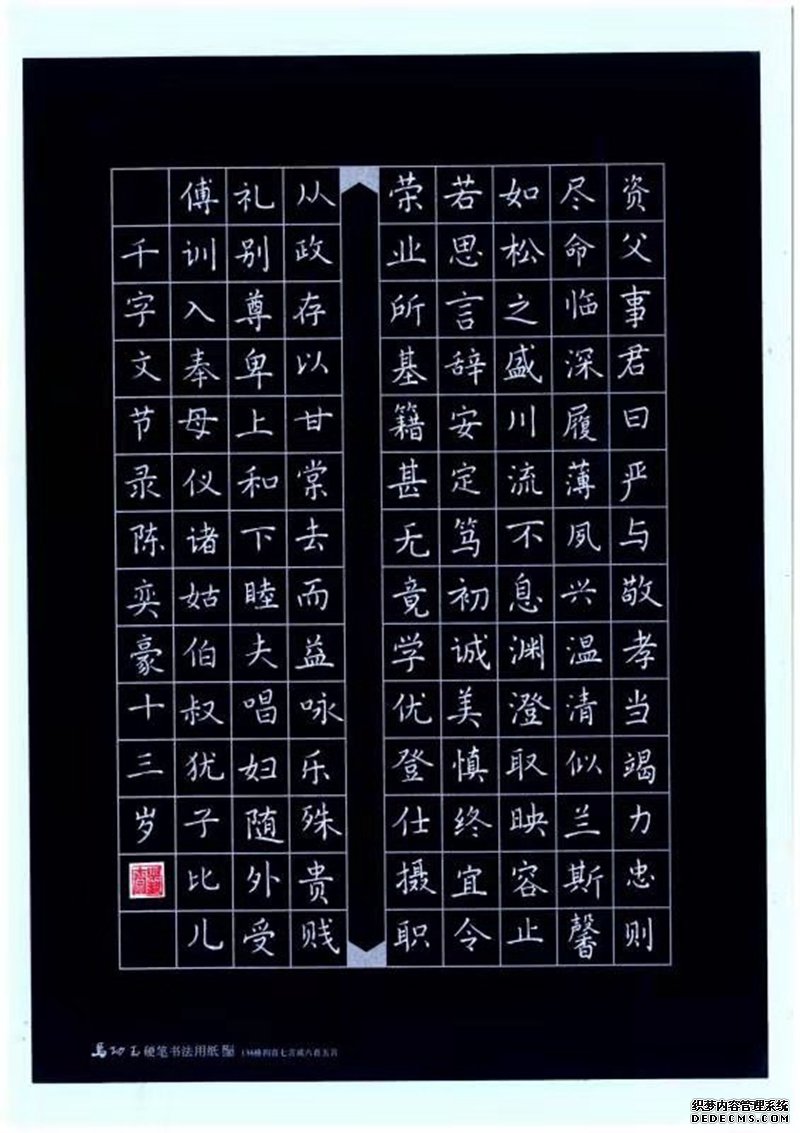 资父事君曰严与敬孝当竭力忠则
尽命临深履薄夙兴温清似兰斯馨
如松之盛川流不息渊澄取映容止
若思言辞安定笃初诚美慎终宜令
荣业所基籍甚无竟学优登仕摄职
从政存以甘棠去而益咏乐殊贵贱
礼别尊卑上和下睦夫唱妇随外受
傅训入奉母仪诸姑伯叔犹子比儿
千字文节录陈奕豪十三岁
硬笔书法用纸
织梦内容管理系统
DEDECMS.COM